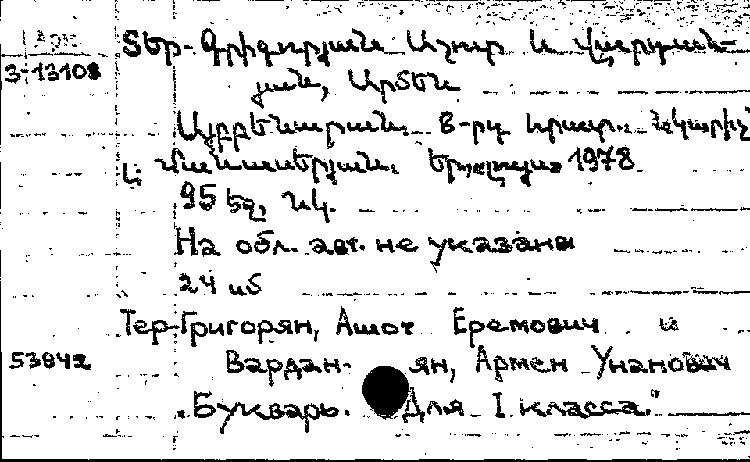 Арм.
3-13108
Տեր-Գրիգորյան Աշոտ և Վարդան-
յան, Արմեն
Այբբենարան. 8-րդ հրատ.: Նկարիչ՝
Լ. Մանասերյան. Երևլույս 1978
95 եզ, նկ.
На обл. авт. не указаны
24 սմ
Тер-Григорян, Ашот Еремович и
53842 Вардан- ян, Армен Унанович
„Букварь. Для I класса."